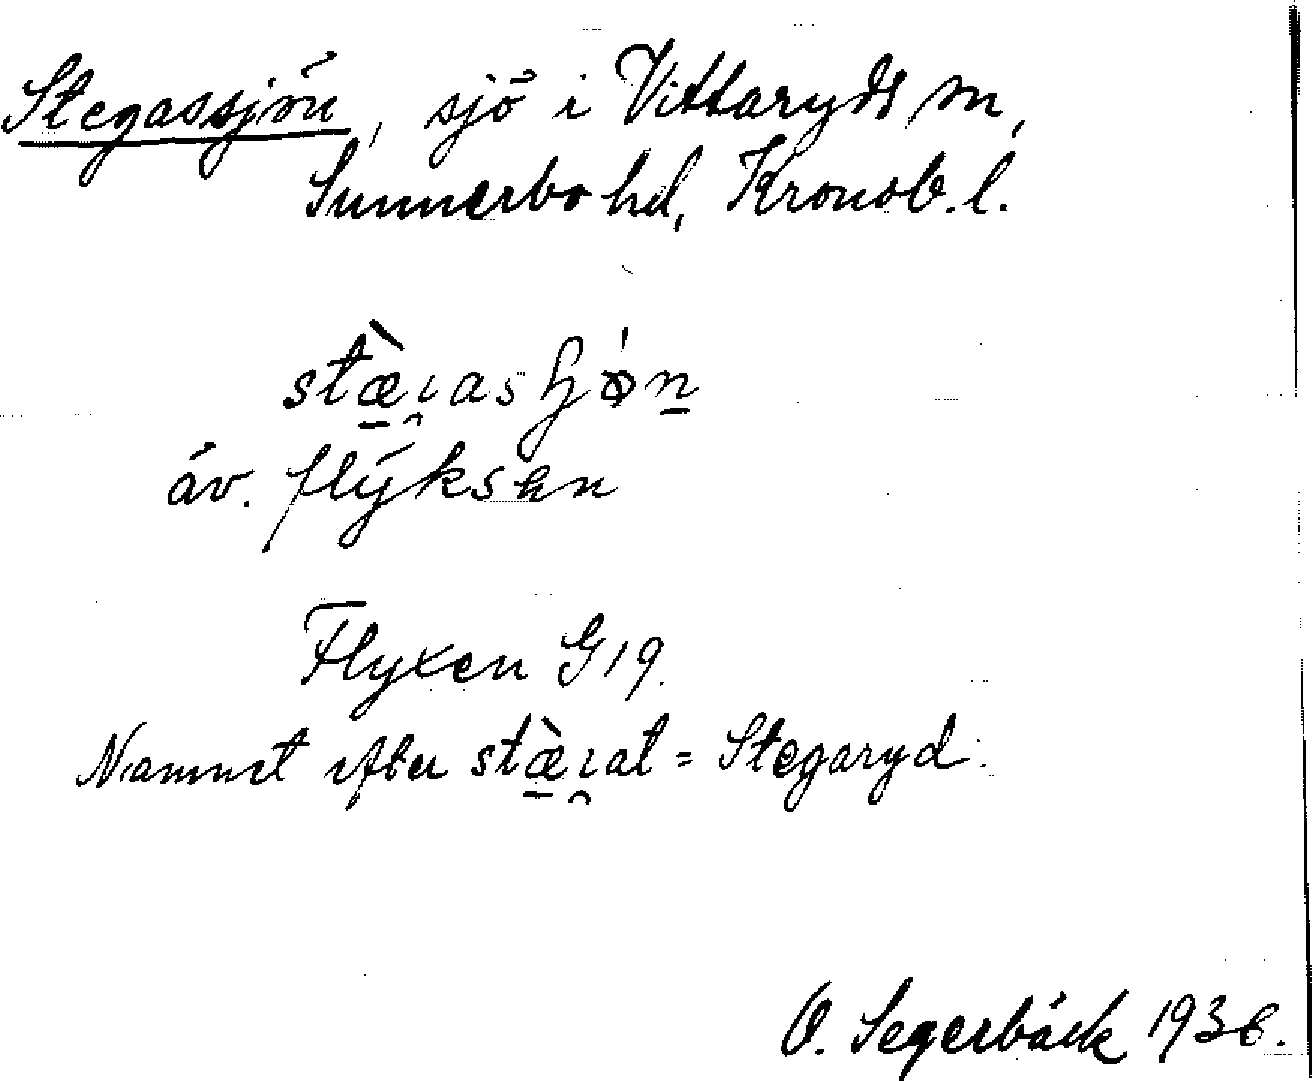 Stegassjön, sjö i Vittaryds sn,
Sunnerbo hd, Kronob. l.
stæ̀ı̯asʃøn
äv. flýksen
Flyxen G 19.
Namnet efter stæ̀ı̯at = Stegaryd.
O. Segerbäck 1936.